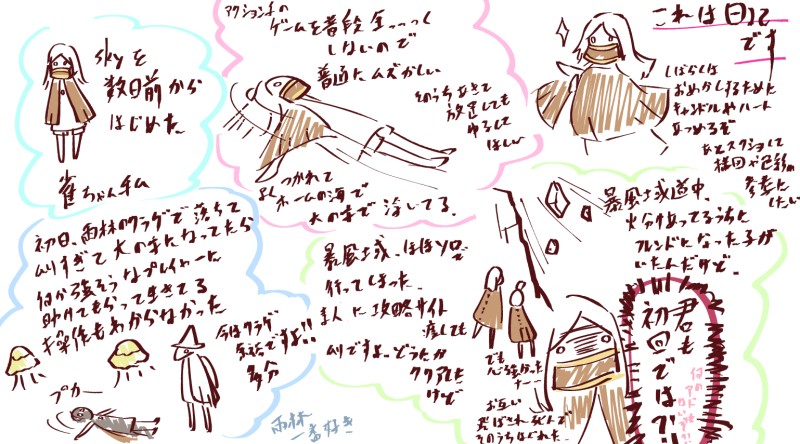 skyを
数日前から
はじめた
雀ちゃん私
アクション系の
ゲームを普段全っっっく
しないので
普通にムズかしい
そのうちあきて
放置しても
ゆるして
ほしい
よくつかれて
ホームの海で
大の字で浮いてる、
これは目立て
です
しばらくは
おめかしするために
キャンドルやハート
あつめるぞ
あとスクショして
模用や色彩の
参考に
したい
初日、雨林のクラゲで落ちて
ムリすぎて大の字になってたら
何か強そうなプレイヤーに
助けてもらって生きてる
操作もわからなかった
今はクラゲ
余裕ですよ!!
多分
プカー
雨林
一番好き
暴風域、ほぼソロで
行ってしまった、
まんに攻略サイト
渡しても
ムリですよ、どうにか
クリアした
けど
でも
心強かった
ナー
暴風域道中、
火分けあってるうちに
フレンドになった子が
いたんだけど、
君も
初回では?!
お互い
飛ばされ死んで
そのうちはぐれた、